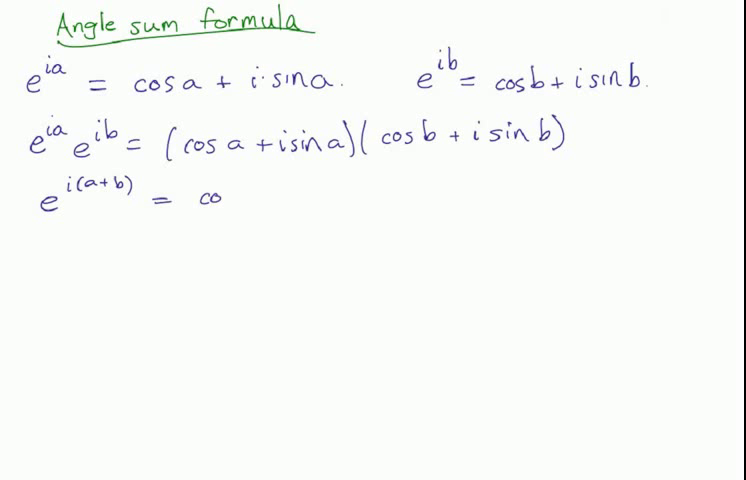 Angle sum formula
e^{ia} = cos a + i·sin a.    e^{ib} = cos b + i sin b.
e^{ia} e^{ib} = (cos a + i sin a)(cos b + i sin b)
e^{i(a+b)} = co